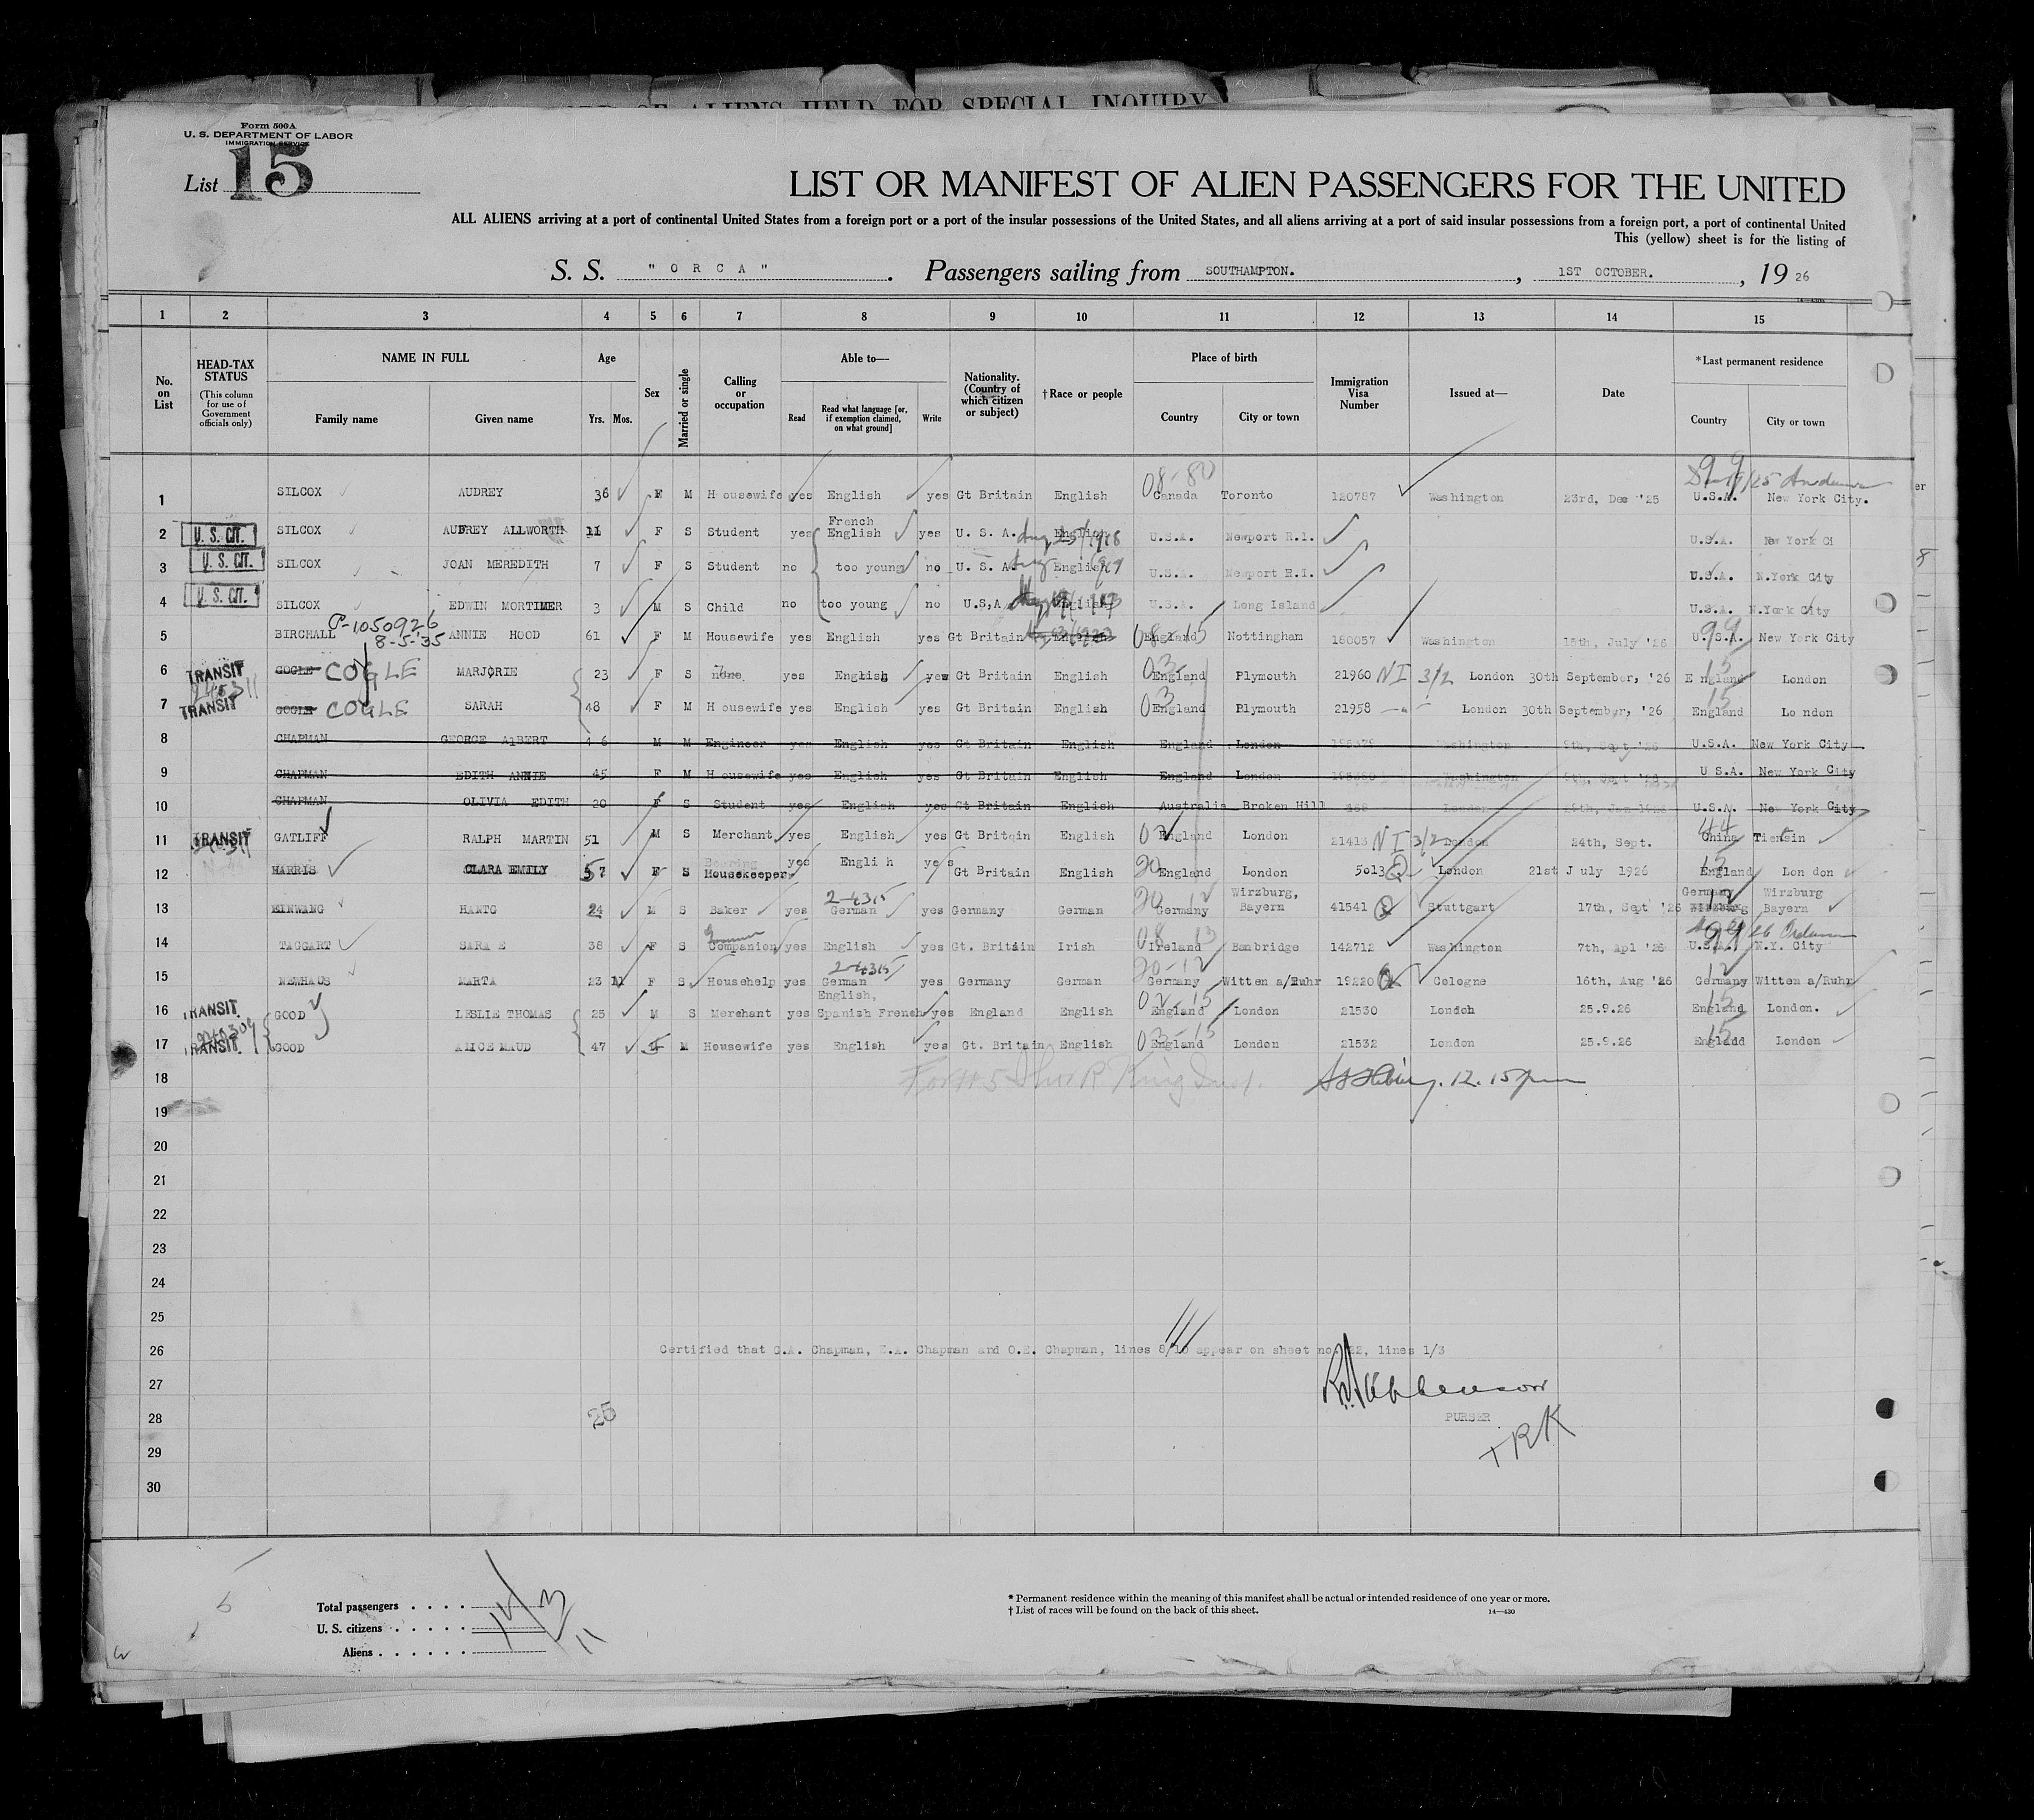 RECORD OF ALIENS HELD FOR SPECIAL INQUIRY
Form 500A
U. S. DEPARTMENT OF LABOR
IMMIGRATION SERVICE
List 15
LIST OR MANIFEST OF ALIEN PASSENGERS FOR THE UNITED
ALL ALIENS arriving at a port of continental United States from a foreign port or a port of the insular possessions of the United States, and all aliens arriving at a port of said insular possessions from a foreign port, a port of continental United
This (yellow) sheet is for the listing of
S. S. "ORCA". Passengers sailing from SOUTHAMPTON., 1ST OCTOBER., 19 26
1 2 3 4 5 6 7 8 9 10 11 12 13 14 15
No. on List
HEAD-TAX STATUS (This column for use of Government officials only)
NAME IN FULL
Family name Given name
Age
Yrs. Mos.
Sex
Married or single
Calling or occupation
Able to—
Read Read what language [or, if exemption claimed, on what ground] Write
Nationality. (Country of which citizen or subject)
†Race or people
Place of birth
Country City or town
Immigration Visa Number
Issued at—
Date
*Last permanent residence
Country City or town
08-80
1 SILCOX AUDREY 36 F M Housewife yes English yes Gt Britain English Canada Toronto 120787 Washington 23rd, Dec '25 U.S.A. New York City.
2 U. S. CIT. SILCOX AUDREY ALLWORTH 11 F S Student yes French English yes U. S. A. English U.S.A. Newport R.I. U.S.A. New York Ci
3 U. S. CIT. SILCOX JOAN MEREDITH 7 F S Student no too young no U. S. A. English U.S.A. Newport R.I. U.S.A. N.York City
4 U. S. CIT. SILCOX EDWIN MORTIMER 3 M S Child no too young no U.S,A English U.S.A. Long Island U.S.A. N.York City
P-1050926
8-5-35
5 BIRCHALL ANNIE HOOD 61 F M Housewife yes English yes Gt Britain English England Nottingham 160057 Washington 15th, July '26 U.S.A. New York City
6 TRANSIT GOGLE COGLE MARJORIE 23 F S none yes English yes Gt Britain English England Plymouth 21960 NI 3/2 London 30th September, '26 England London
7 TRANSIT GOGLE COGLE SARAH 48 F M Housewife yes English yes Gt Britain English England Plymouth 21958 London 30th September, '26 England London
8 CHAPMAN GEORGE AlBERT 46 M M Engineer yes English yes Gt Britain English England London Washington 9th, Sept '26 U.S.A. New York City
9 CHAPMAN EDITH ANNIE 45 F M Housewife yes English yes Gt Britain English England London Washington U S.A. New York City
10 CHAPMAN OLIVIA EDITH 20 F S Student yes English yes Gt Britain English Australia Broken Hill London U.S.A. New York City
11 TRANSIT GATLIFF RALPH MARTIN 51 M S Merchant yes English yes Gt Britain English England London 21413 NI 3/2 London 24th, Sept. China Tientsin
12 HARRIS CLARA EMILY 57 F S Housekeeper yes Engli h yes Gt Britain English England London 5013 London 21st July 1926 England London
13 EINWANG HANTG 24 M S Baker yes German yes Germany German Germany Wirzburg, Bayern 41541 Stuttgart 17th, Sept '26 Germany Wirzburg Bayern
14 TAGGART SARA E 38 F S Companion yes English yes Gt. Britain Irish Ireland Banbridge 142712 Washington 7th, Apl '26 U.S.A. N.Y. City
15 NEWHAUS MARTA 23 11 F S Househelp yes German yes Germany German Germany Witten a/Ruhr 19220 Cologne 16th, Aug '26 Germany Witten a/Ruhr
16 TRANSIT GOOD LESLIE THOMAS 25 M S Merchant yes English, Spanish French yes England English England London 21530 London 25.9.26 England London.
17 TRANSIT GOOD ALICE MAUD 47 F M Housewife yes English yes Gt. Britain English England London 21532 London 25.9.26 England London
18 12.15 pm
19
20
21
22
23
24
25
26 Certified that G.A. Chapman, E.A. Chapman and O.E. Chapman, lines 8/10 appear on sheet no. 22, lines 1/3
27
28 PURSER
29 TRK
30
Total passengers
U. S. citizens
Aliens
14
3
11
* Permanent residence within the meaning of this manifest shall be actual or intended residence of one year or more.
† List of races will be found on the back of this sheet. 14—430